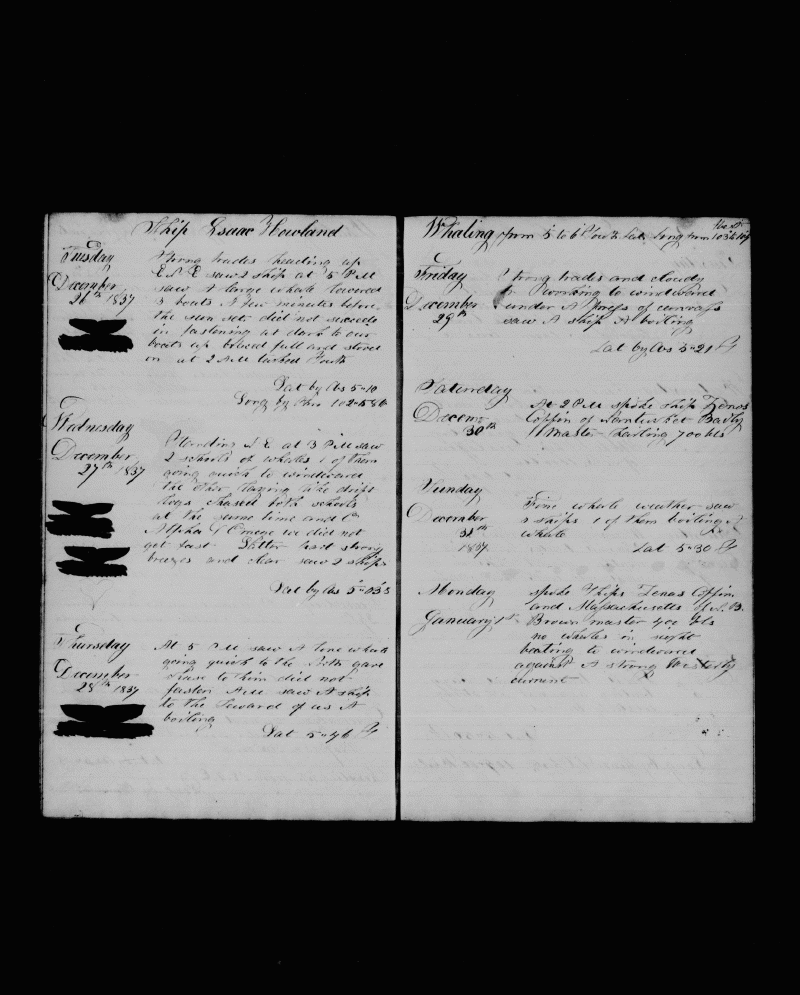 Ship Isaac Howland
Tuesday
December
26th 1837
Strong trades heading up
E N E saw A ship at 5 P M
saw A large whale lowered
3 boats A few minutes before
the sun set did not succeede
in fastening at dark to our
boats up full and
on at 2 A M tacked South
Lat by Obs 5=10
Long by Chro 102=58
Wednesday
December
27th 1837
Standing S E at 3 P M saw
2 schools of whales 1 of them
going quick to windward
the other laying like drift
logs chased both schools
at the same time and
Alpha & Omega we did not
get fast Latter had strong
breezes and clear saw 2 ships
Lat by Obs 5=03 S
Thursday
December
28th 1837
At 5 P M saw A lone whale
going quick to the North gave
chase to him did not
fasten A M saw A ship
to the Leward of us A
boiling
Lat 5=46
Whaling from 5 to 6 South Lat Long from 103 to 104 West
Friday
December
29th
Strong trades and cloudy
working to windward
under A press of canvass
saw A ship A boiling
Lat by Obs 5=21
Saturday
Decem
30th
At 2 P M spoke ship Zenas
Coffin of Nantucket
Master 700 bls
Sunday
December
31th
1837
Fine whale weather saw
3 ships 1 of them boiling
whale
Lat 5=30
Monday
January 1st
spoke Ships Zenas Coffin
and Massachusetts
Brown master 400 bls
no whales in sight
beating to windward
against A strong Westerly
current